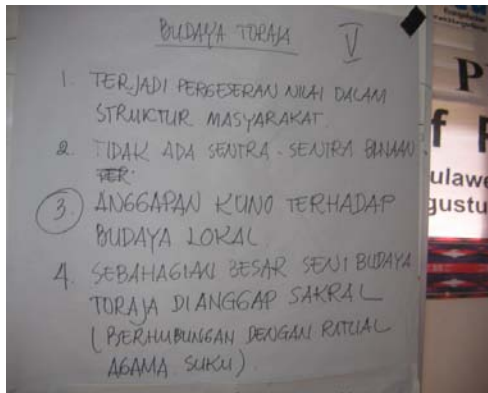 BUDAYA TORAJA
V
1. TERJADI PERGESERAN NILAI DALAM
STRUKTUR MASYARAKAT.
2. TIDAK ADA SENTRA-SENTRA BINAAN
TER.
3. ANGGAPAN KUNO TERHADAP
BUDAYA LOKAL
4. SEBAHAGIAN BESAR SENI BUDAYA
TORAJA DIANGGAP SAKRAL
(BERHUBUNGAN DENGAN RITUAL
AGAMA SUKU).
P
f F
ulawe
gustu